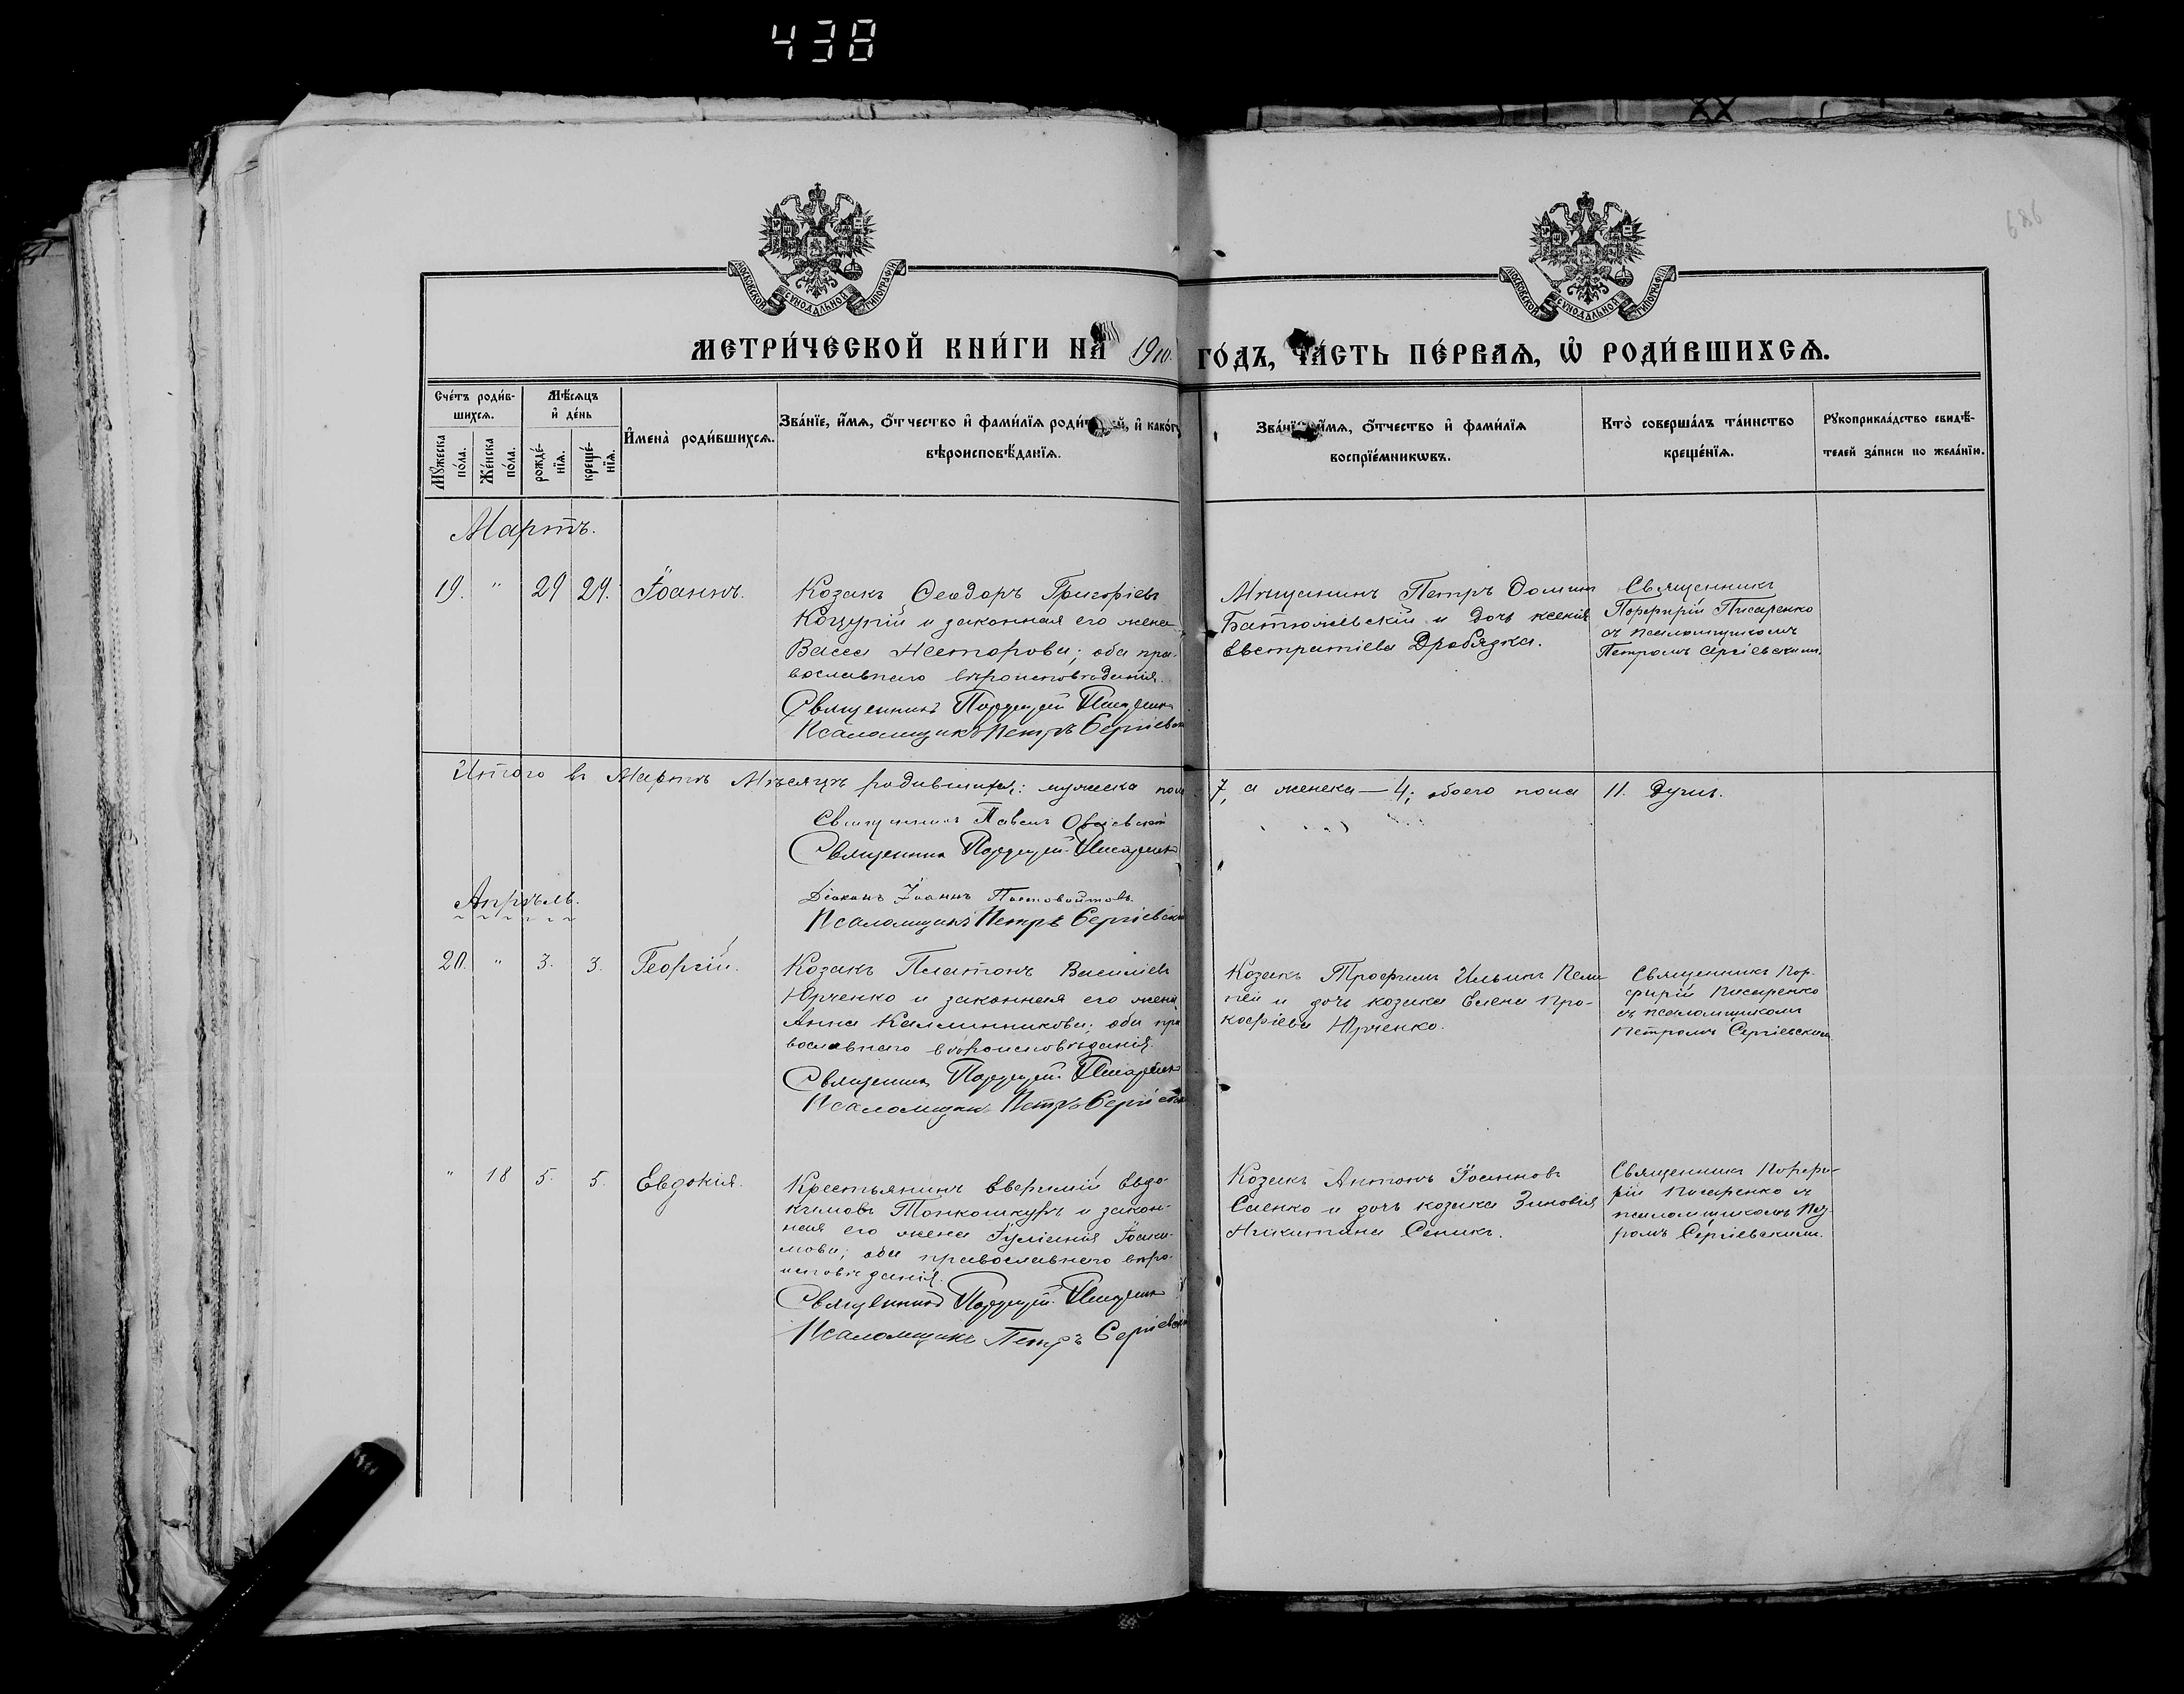 438
686
МОСКОВСКОЙ СѴНОДАЛЬНОЙ ТИПОГРАФІИ
МОСКОВСКОЙ СѴНОДАЛЬНОЙ ТИПОГРАФІИ
МЕТРИ́ЧЕСКОЙ КНИ́ГИ НА 1910. ГО́ДЪ, ЧА́СТЬ ПЕ́РВАѦ, Ѡ҆ РОДИ́ВШИХСѦ.
Сче́тъ роди́в-
шихсѧ.
Мꙋ́жеска по́ла.
Же́нска по́ла.
Мѣ́сѧцъ
и҆ де́нь
рожде́-нїѧ.
креще́-нїѧ.
И҆мена̀ роди́вшихсѧ.
Зва́нїе, и҆́мѧ, ѻ҆́тчество и҆ фами́лїѧ роди́т й, и҆ како́гѡ
вѣроисповѣ́данїѧ.
Зва́нїе, и҆́мѧ, ѻ҆́тчество и҆ фами́лїѧ
воспрїе́мникѡвъ.
Кто̀ соверша́лъ та́инство
креще́нїѧ.
Рꙋкоприкла́дство свидѣ́-
телей за́писи по жела́нїю.
Мартъ.
19. " 29 29. Іоаннъ.
Козакъ Ѳеодоръ Григоріевъ
Коцупій и законная его жена
Васса Несторова; оба пра-
вославнаго вѣроисповѣданія.
Священникъ Порфирій Писаренко
Псаломщикъ Петръ Сергіевскій
Мѣщанинъ Петръ
и дочь Ксенія
Евстратіева Дробязка.
Священникъ
Порфирій Писаренко
съ псаломщикомъ
Петромъ Сергіевскимъ.
Итого въ Мартѣ Мѣсяцѣ родившихся: мужеска пола 7, а женска — 4; обоего пола 11. душъ.
Священникъ Павелъ
Священникъ Порфирій Писаренко
Діаконъ Іоаннъ
Псаломщикъ Петръ Сергіевскій
Апрѣль.
20. " 3. 3. Георгій.
Козакъ Платонъ Василіевъ
Юрченко и законная его жена
Анна Каллинникова; оба пра-
вославнаго вѣроисповѣданія.
Священникъ Порфирій Писаренко
Псаломщикъ Петръ Сергіевскій
Козакъ Трофимъ Ильинъ
и дочь козака Елена Про-
кофіева Юрченко.
Священникъ Пор-
фирій Писаренко
съ псаломщикомъ
Петромъ Сергіевскимъ
" 18 5. 5. Евдокія.
Крестьянинъ Евѳимій Евдо-
кимовъ Тонкошкуръ и закон-
ная его жена Іуліанія Іоаки-
мова; оба православнаго вѣро-
исповѣданія.
Священникъ Порфирій Писаренко
Псаломщикъ Петръ Сергіевскій
Козакъ Антонъ Іоанновъ
Саенко и дочь козака Зиновія
Никитина Сеникъ.
Священникъ Порфи-
рій Писаренко съ
псаломщикомъ Пет-
ромъ Сергіевскимъ.